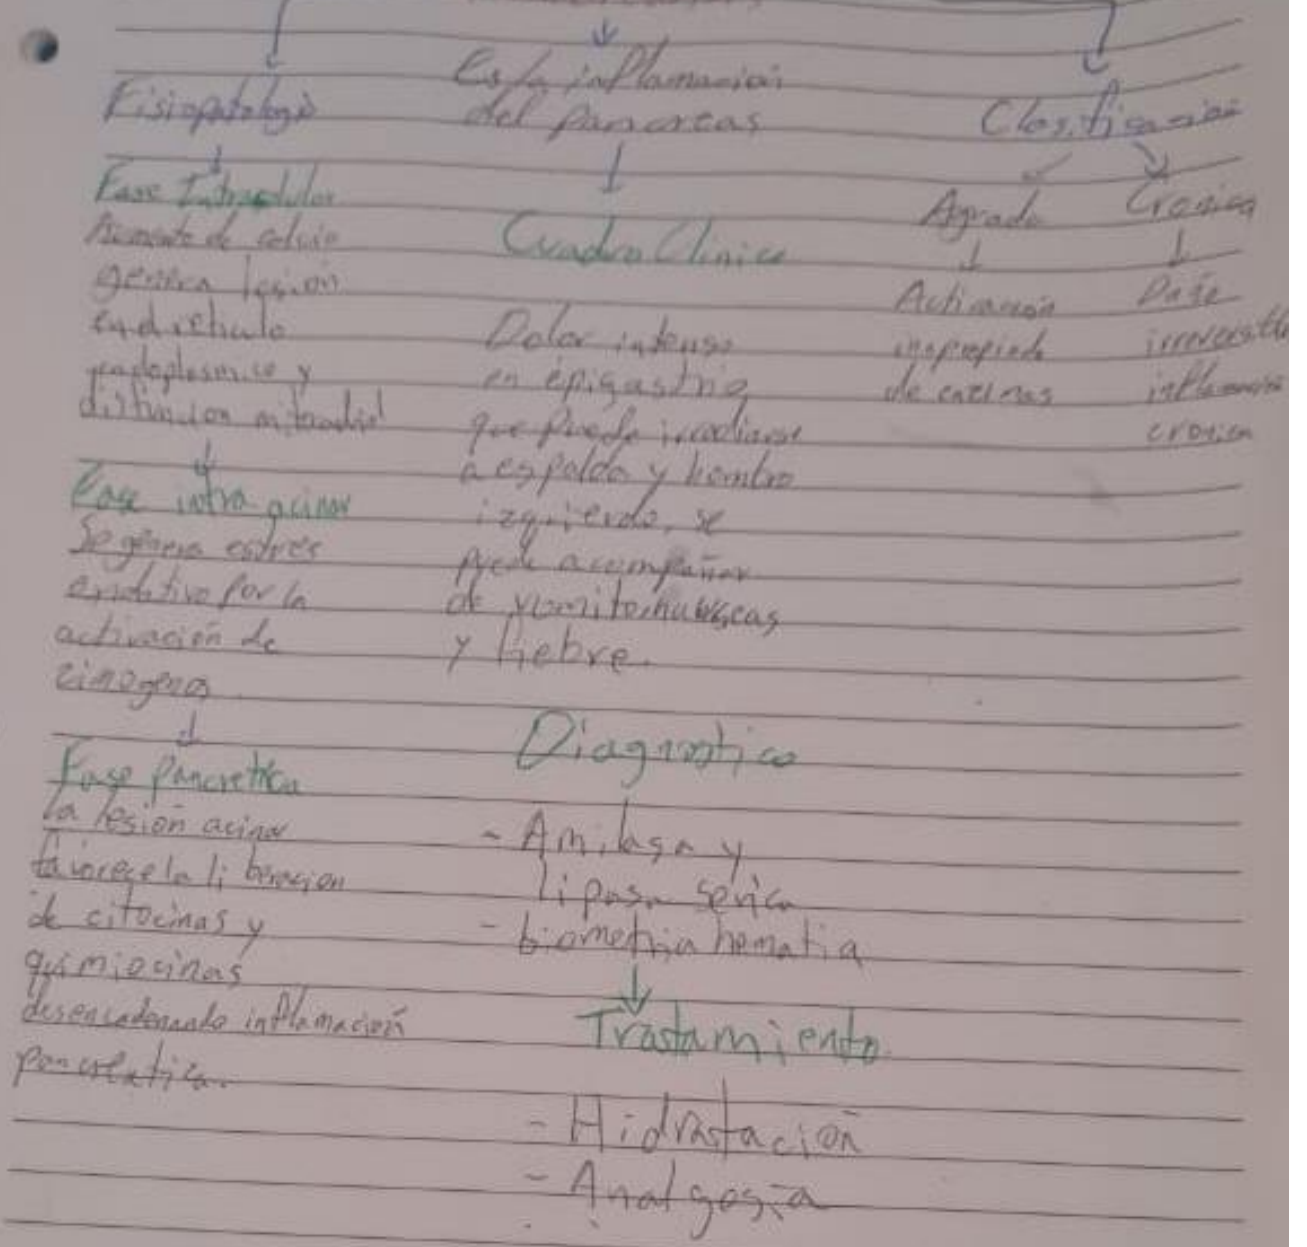 Es la inflamación
del pancreas
Fisiopatologia
Fase Intracelular
Aumento de calcio
genera lesión
en el reticulo
endoplasmico y
disfuncion mitocondrial
Fase intra acinar
Se genera estrés
oxidativo por la
activación de
zimogenos
Fase Pancretica
la lesión acinar
favorece la liberacion
de citocinas y
quimiocinas
desencadenando inflamación
pancreatica.
Cuadro Clinico
Dolor intenso
en epigastrio
que puede irradiarse
a espalda y hombro
izquierdo, se
puede acompañar
de vomito, nauseas
y fiebre.
Diagnostico
- Amilasa y
lipasa serica
- biometria hematia
Trastamiento
- Hidrastación
- Analgesia
Clasificacion
Agrada
Activación
inapropiada
de enzimas
Cronica
Daño
irreversible
inflamacion
cronica